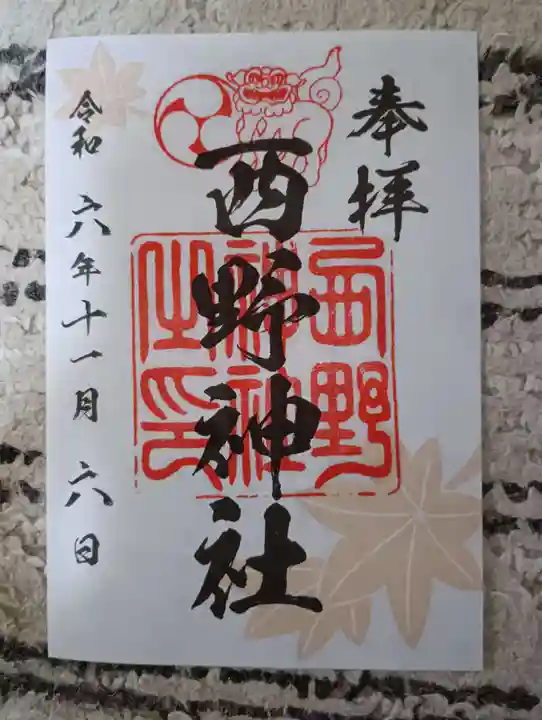 奉拝
西野神社
西野
神社
之印
令和 六年十一月 六日